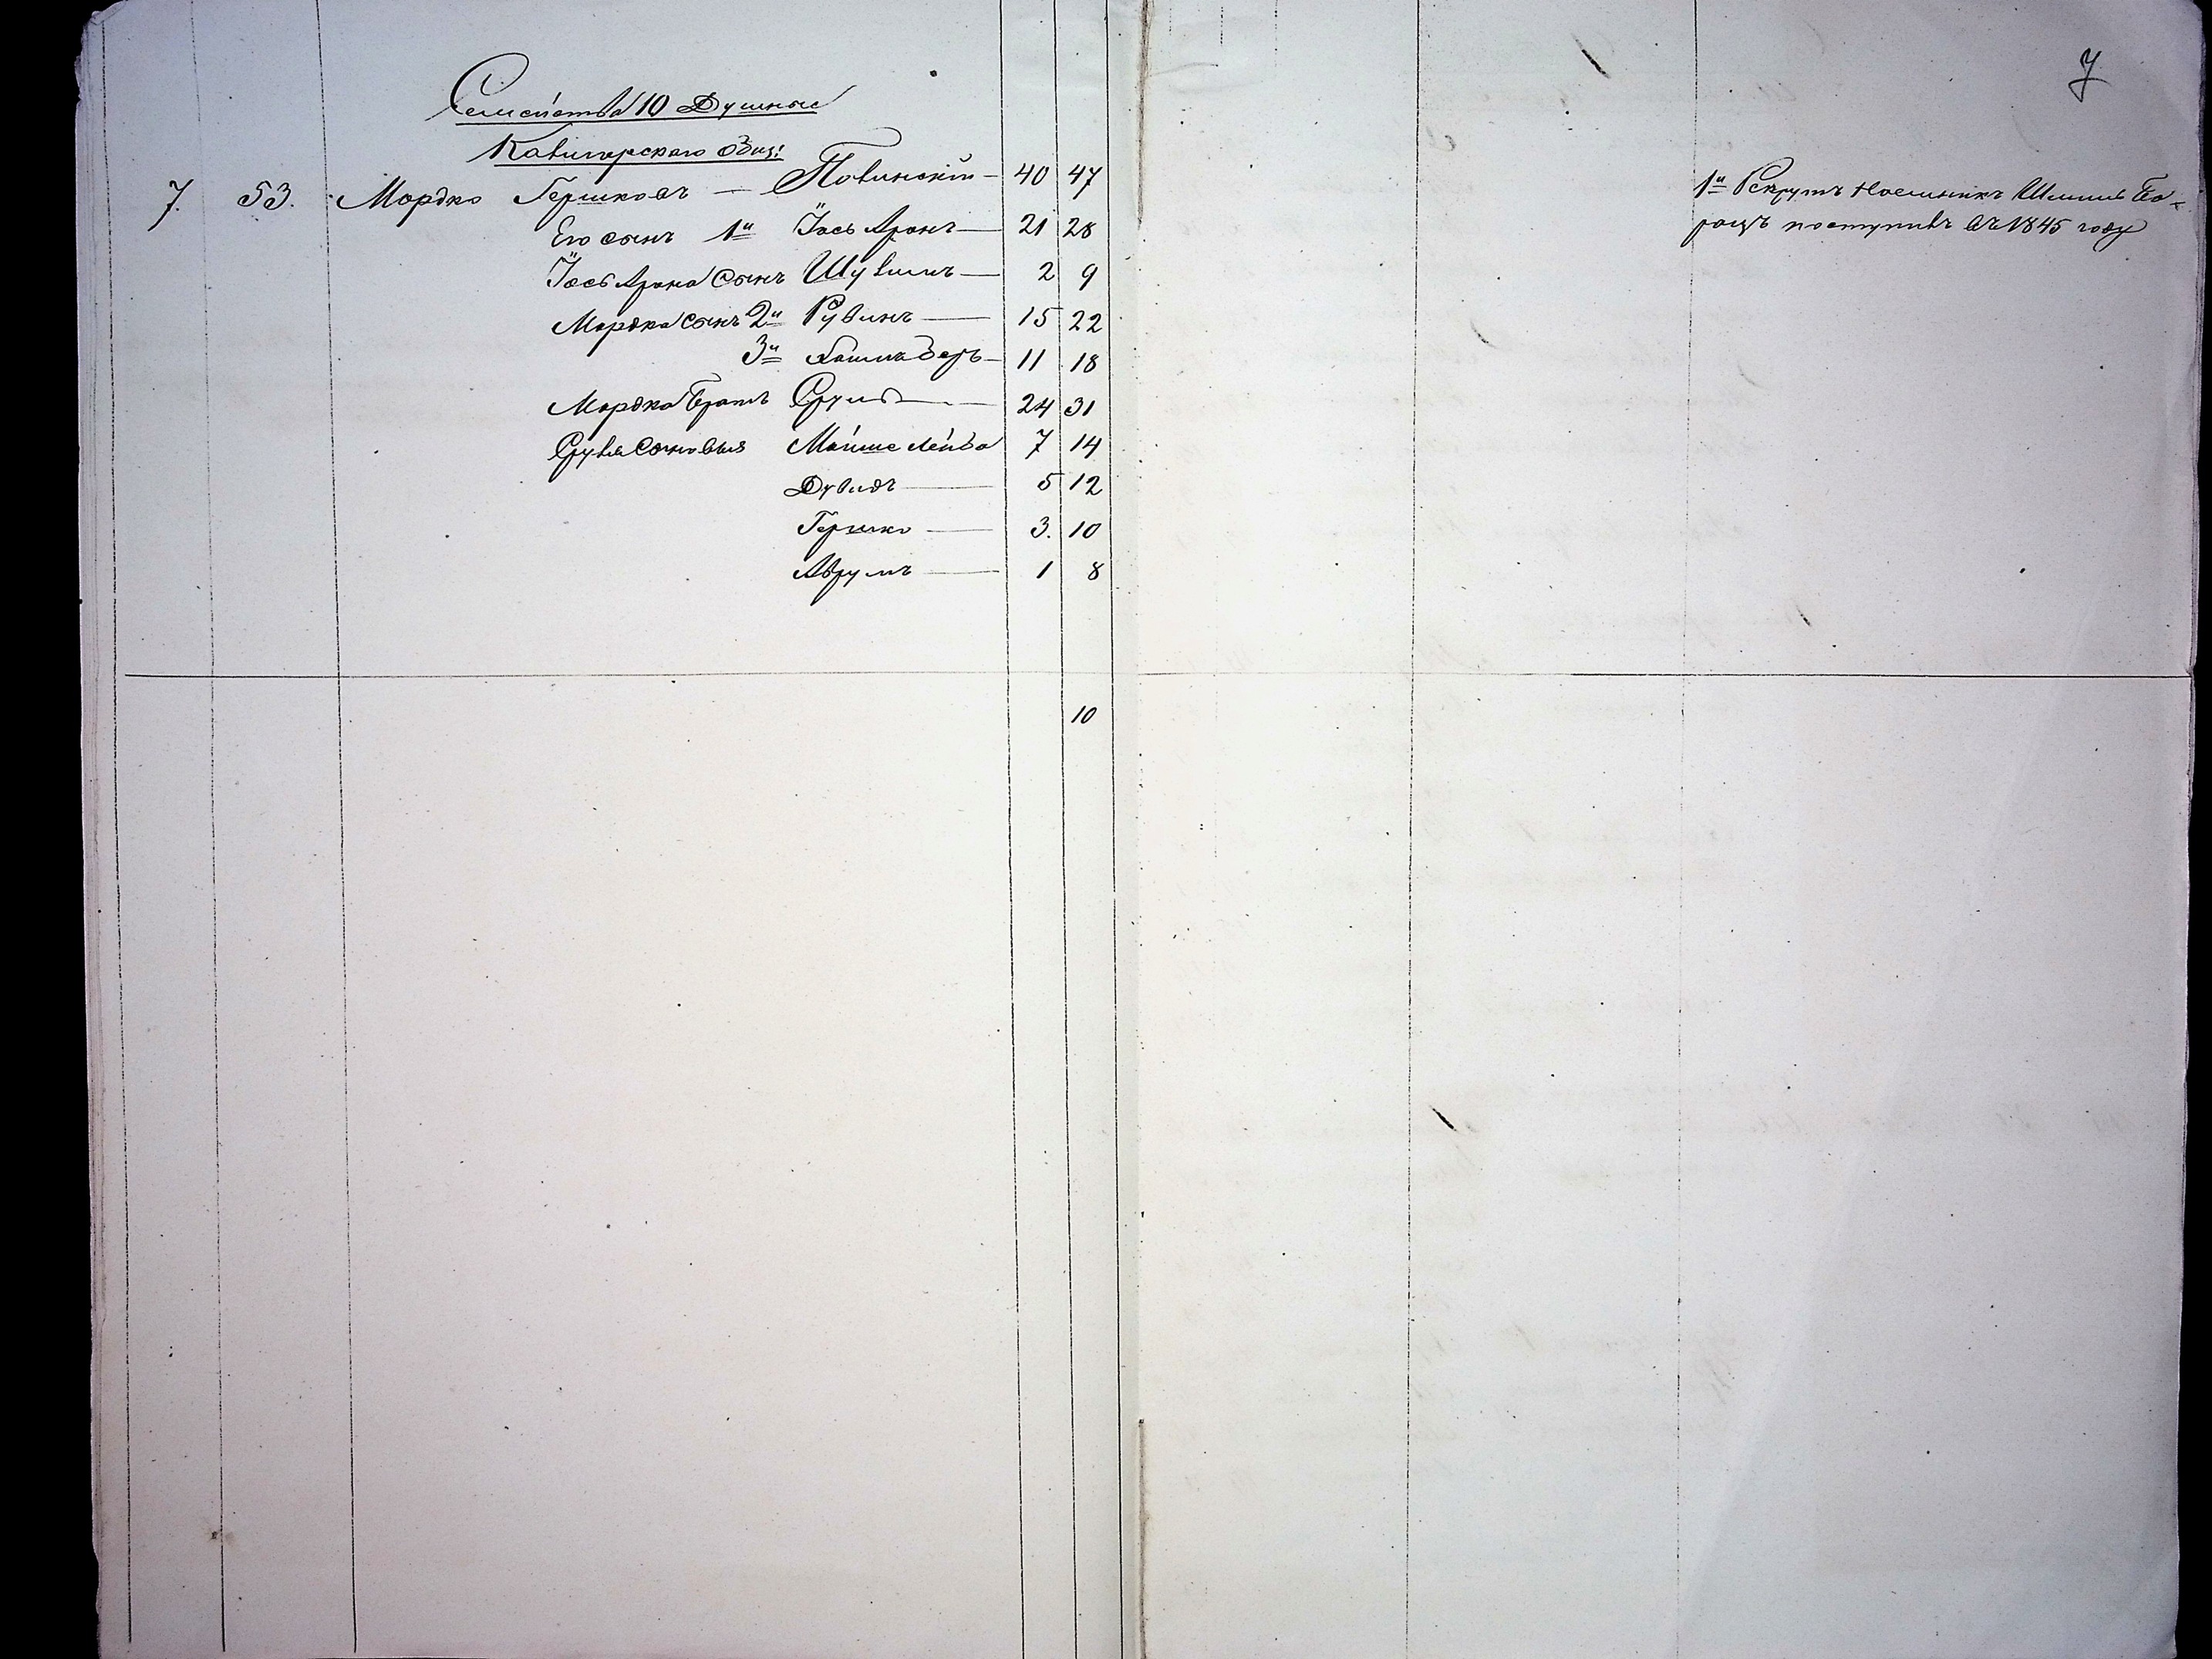 7
Семейства 10 Душные
Кавшарскаго общ:
7. 53. Мордко Гершковъ — Повинскій — 40 47
Его сынъ 1й Іось Аронъ — 21 28
Іось Арона сынъ Шувимъ — 2 9
Мордка сынъ 2й Рувинъ — 15 22
3й Беръ — 11 18
Мордка братъ Сруль — 24 31
Сруля сыновья Мойше Лейба 7 14
Дувидъ — 5 12
Гершко — 3. 10
Аврумъ — 1 8
10
1й Рекрутъ наемникъ Шлиомъ Бо-
рацъ поступивъ въ 1845 году